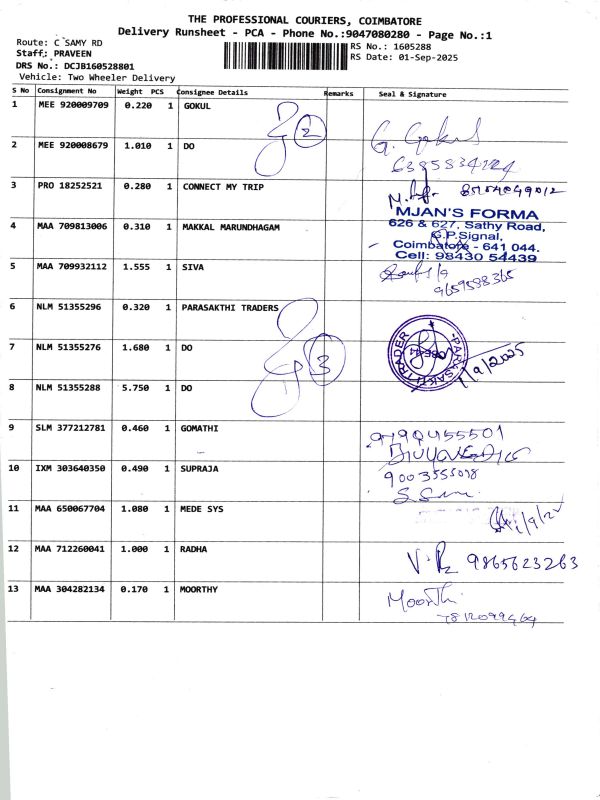 THE PROFESSIONAL COURIERS, COIMBATORE
Delivery Runsheet - PCA - Phone No.:9047080280 - Page No.:1
Route: C SAMY RD
RS No.: 1605288
Staff: PRAVEEN
RS Date: 01-Sep-2025
DRS No.: DCJB160528801
Vehicle: Two Wheeler Delivery
S No Consignment No Weight PCS Consignee Details Remarks Seal & Signature
1 MEE 920009709 0.220 1 GOKUL
2
G. Gokul
2 MEE 920008679 1.010 1 DO
6385834124
3 PRO 18252521 0.280 1 CONNECT MY TRIP
MJAN'S FORMA
4 MAA 709813006 0.310 1 MAKKAL MARUNDHAGAM
626 & 627, Sathy Road,
G.P.Signal,
Coimbatore - 641 044.
Cell: 98430 54439
5 MAA 709932112 1.555 1 SIVA
9659598365
6 NLM 51355296 0.320 1 PARASAKTHI TRADERS
7 NLM 51355276 1.680 1 DO
3
PARASAKTHI TRADER
1/9/2025
8 NLM 51355288 5.750 1 DO
9 SLM 377212781 0.460 1 GOMATHI
9790455501
10 IXM 303640350 0.490 1 SUPRAJA
9003555098
11 MAA 650067704 1.080 1 MEDE SYS
12 MAA 712260041 1.000 1 RADHA
9865623263
13 MAA 304282134 0.170 1 MOORTHY
Moorthi
7812099469